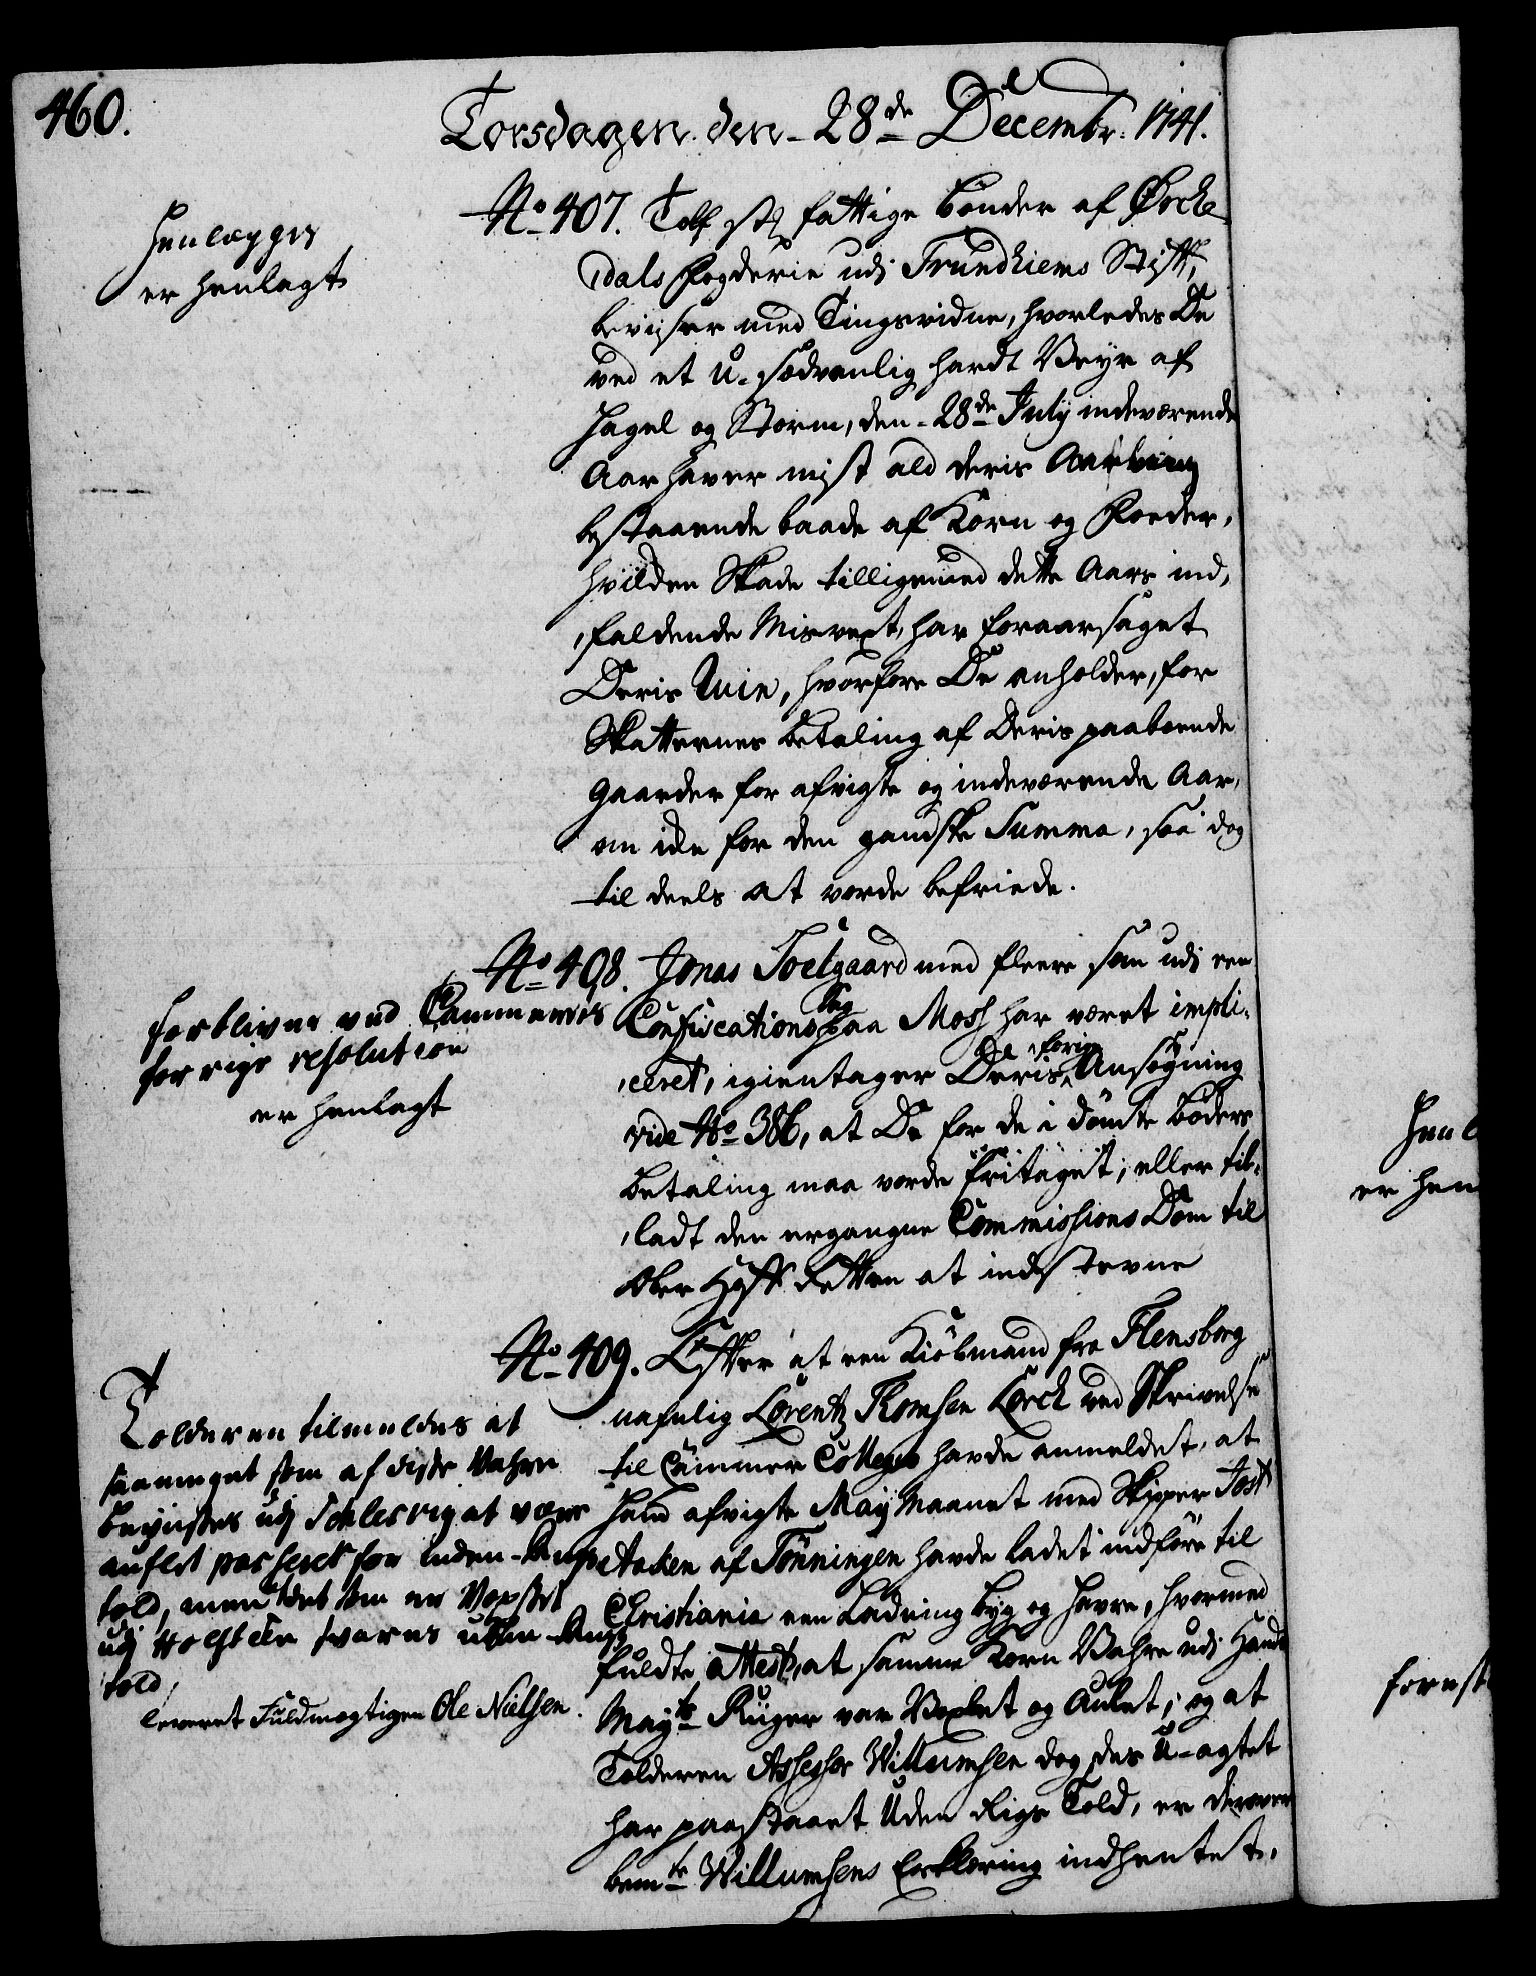 460.
Torsdagen den 28de Decembr: 1741.
Henlægges
er henlagt
No 407. Tolf st: fattige bönder af Örcke-
dals fogderie udi Trundhiems Stift,
beviser med Tingsvidne, hvorledes De
ved et u-sædvanlig hardt Veyr af
Hagel og Storm, den 28de July indeværende
Aar haver mist ald deris Aarvext
bestaaende baade af Korn og Foeder,
hvilcken Skade tilligemed dette Aars ind-
faldende Misvext, har foraarsaget
Deris Ruin, hvorfore De anholder, for
Skatternes betaling af deris paaboende
gaarder for afvigte og indeværende Aar,
om icke for den gandske Summa, saa dog
til deels at vorde befriede.
forblives ved Cammerets
forrige resolution
er henlagt
No 408. Jonas Toelgaard med fleere som udi een
Confiscations Sag paa Moss har været impli-
ceret, igientager Deris forrige Ansøgning
vide No 386, at De for de idömte böders
betaling maa vorde fritaget, eller til-
ladt den ergangne Commissions Dom til
Ober Hoff Retten at indstevne
Tolderen tilmeldes at
saameget som af disse Vahre
beviises udj Schlesvig at være
auflet passerer for inden-Rigs
told, men det som er Voxset
udj Holsten svares uden-Rigs
told,
leveret Fuldmegtigen Ole Nielsen.
No 409. Efter at een Kiöbmand fra Flensborg
nafnlig Lorentz Thomsen Lorck ved Skrivelse
til Cammer Collegio havde anmeldet, at
hand afvigte May Maanet med Skipper Jost
Aaken af Tönningen havde ladet indføre til
Christiania een Ladning byg og havre, hvormed
fuldte attest, at samme Korn Vahre udi Hans
Mayts Riiger var Voxet og Aulet, og at
Tolderen Assessor Willumsen dog des u-agtet
har paastaaet Uden Rigs Told, er derover
bemte Willumsens Erklæring indhentet,
Henl
er hen
forest